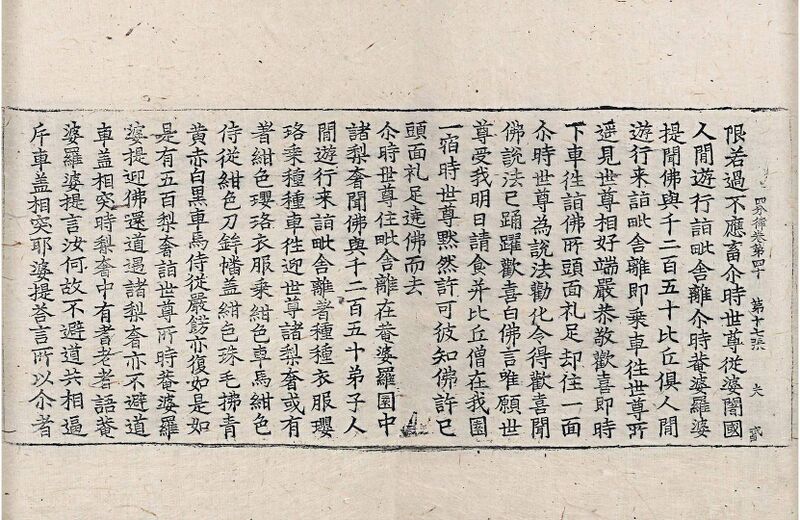 四分律卷第四十 第十二張
限若過不應畜尒時世尊從婆闍國
人閒遊行詣毗舍離尒時菴婆羅婆
提聞佛與千二百五十比丘俱人閒
遊行来詣毗舍離即乗車往世尊所
遥見世尊相好端嚴恭敬歡喜即時
下車徃詣佛所頭面礼足却住一面
尒時世尊為說法勸化令得歡喜聞
佛說法已踊躍歡喜白佛言唯願世
尊受我明日請食并比丘僧在我園
一宿時世尊黙然許可彼知佛許已
頭面礼足遶佛而去
尒時世尊住毗舍離在菴婆羅園中
諸梨奢聞佛與千二百五十弟子人
閒遊行来詣毗舍離著種種衣服瓔
珞乗種種車徃迎世尊諸梨奢或有
著紺色瓔珞衣服乗紺色車馬紺色
侍從紺色刀鉾幡盖紺色珠毛拂青
黄赤白黒車馬侍從嚴餝亦復如是如
是有五百梨奢詣世尊所時菴婆羅
婆提迎佛還道遇諸梨奢亦不避道
車盖相突時梨奢中有耆老者語菴
婆羅婆提言汝何故不避道共相逼
斥車盖相突耶婆提荅言所以尒者